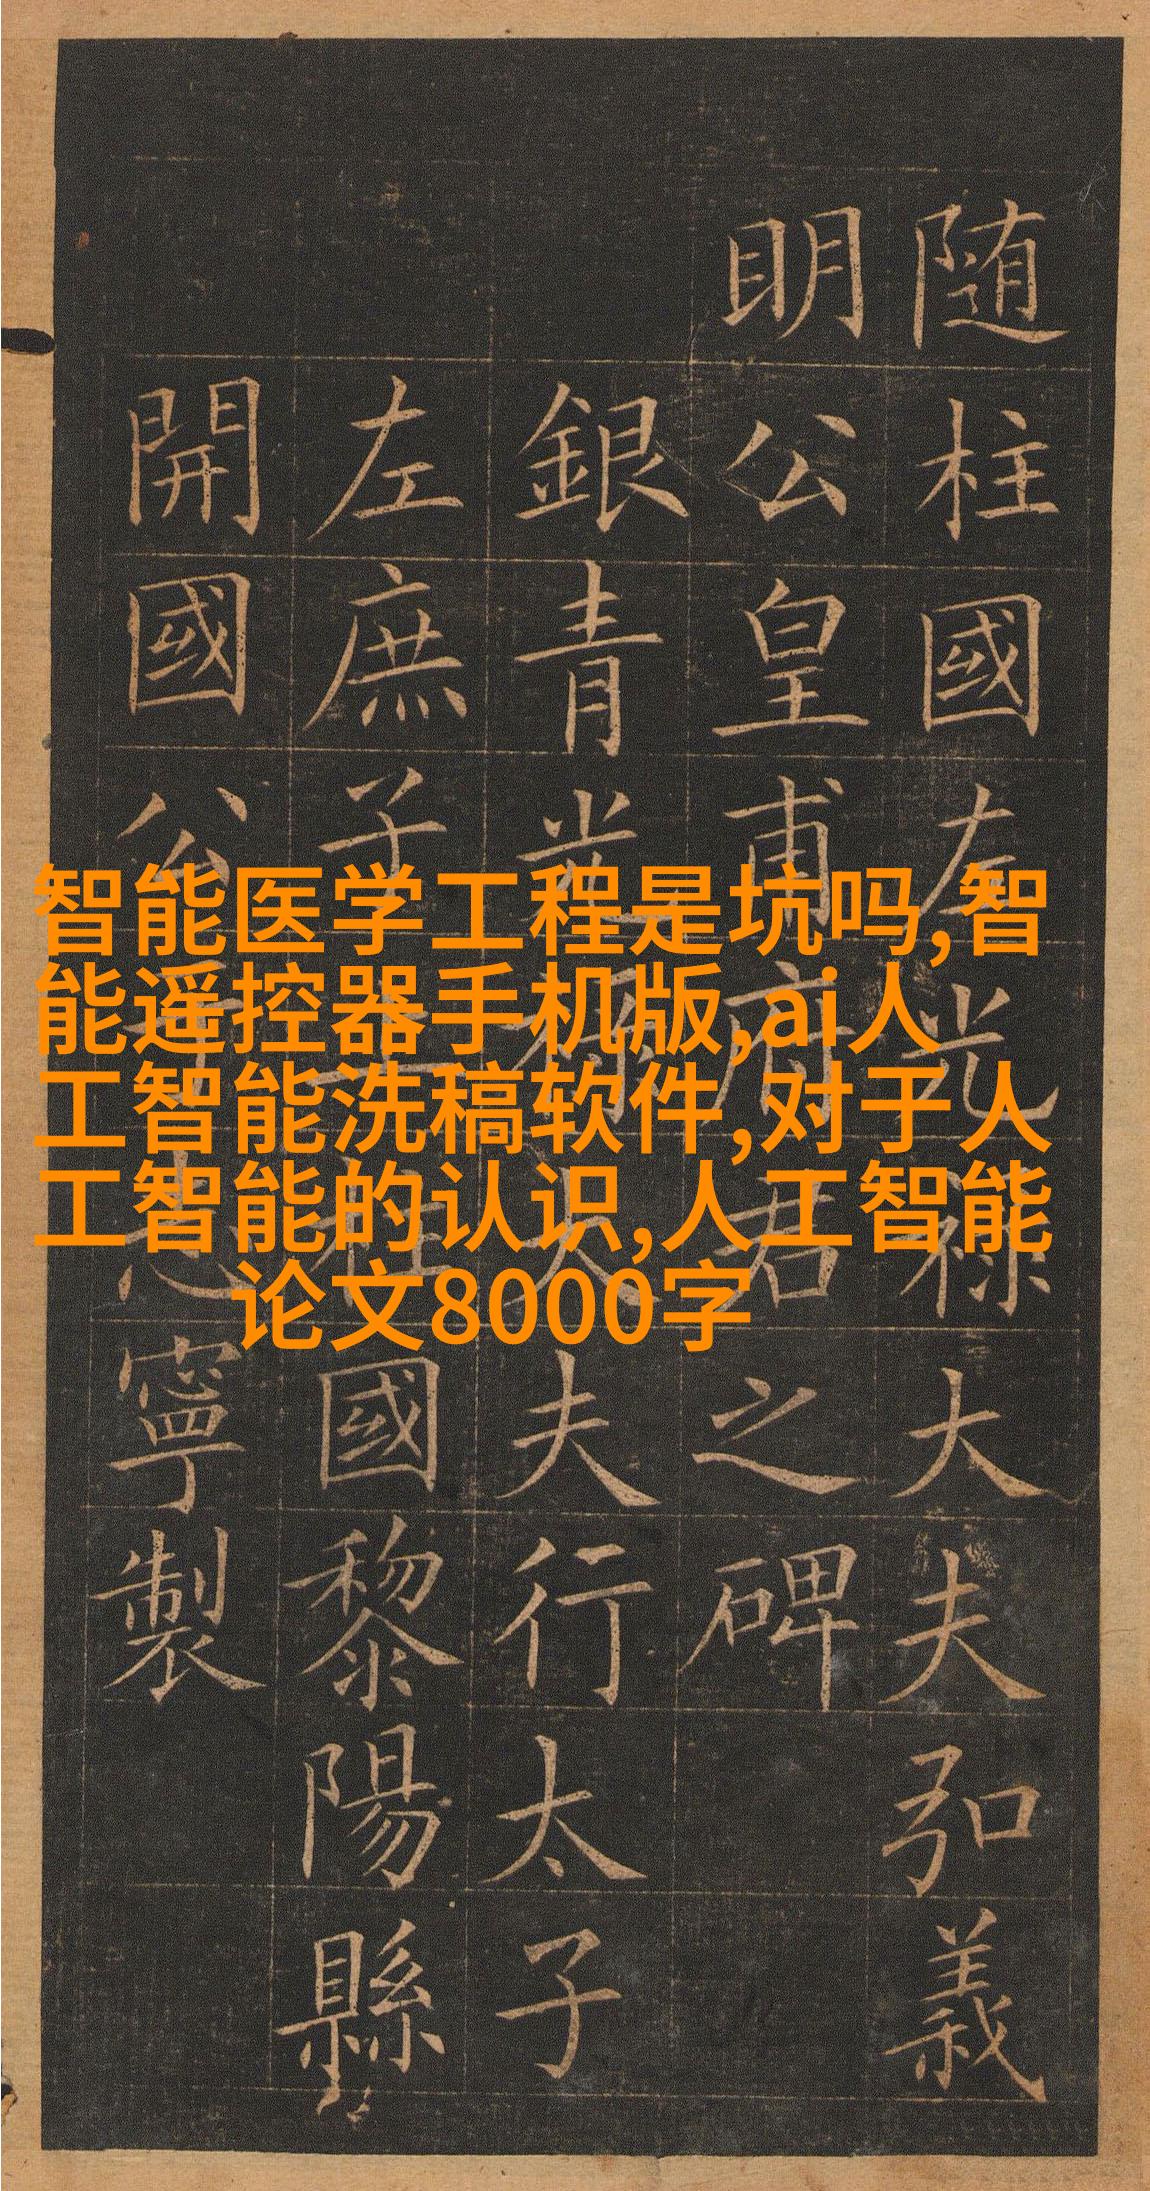 随柱國左光禄大夫弘義
明公皇甫府君之碑
銀青光禄大夫行太子
左庶子上柱國黎陽縣
開國公于志寧製
智能医学工程是坑吗,智
能遥控器手机版,ai人
工智能洗稿软件,对于人
工智能的认识,人工智能
论文8000字